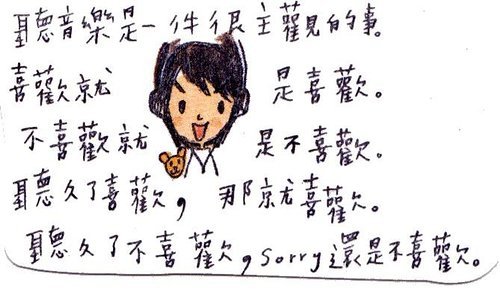 聽音樂是一件很主觀的事。
喜歡就是喜歡。
不喜歡就是不喜歡。
聽久了喜歡，那就喜歡。
聽久了不喜歡，sorry還是不喜歡。